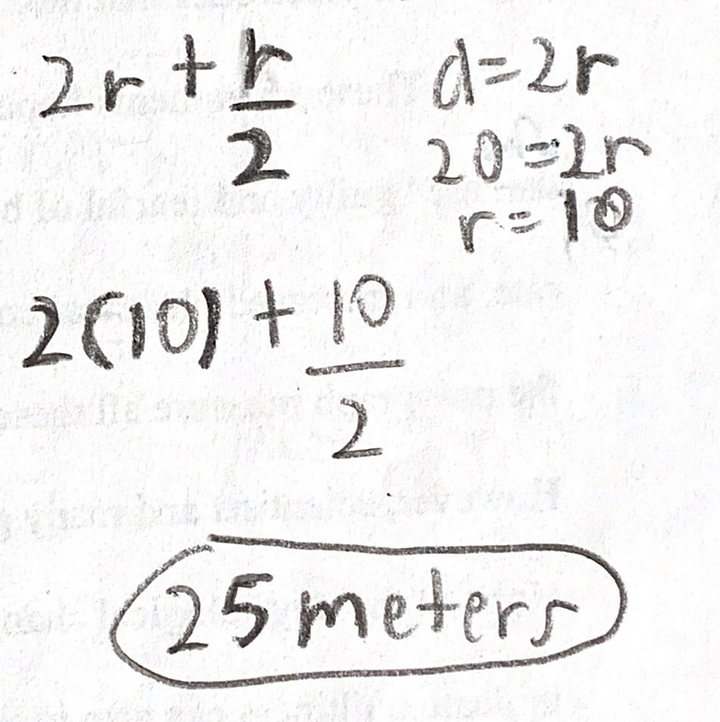 2r + r/2
d=2r
20=2r
r=10
2(10) + 10/2
25 meters